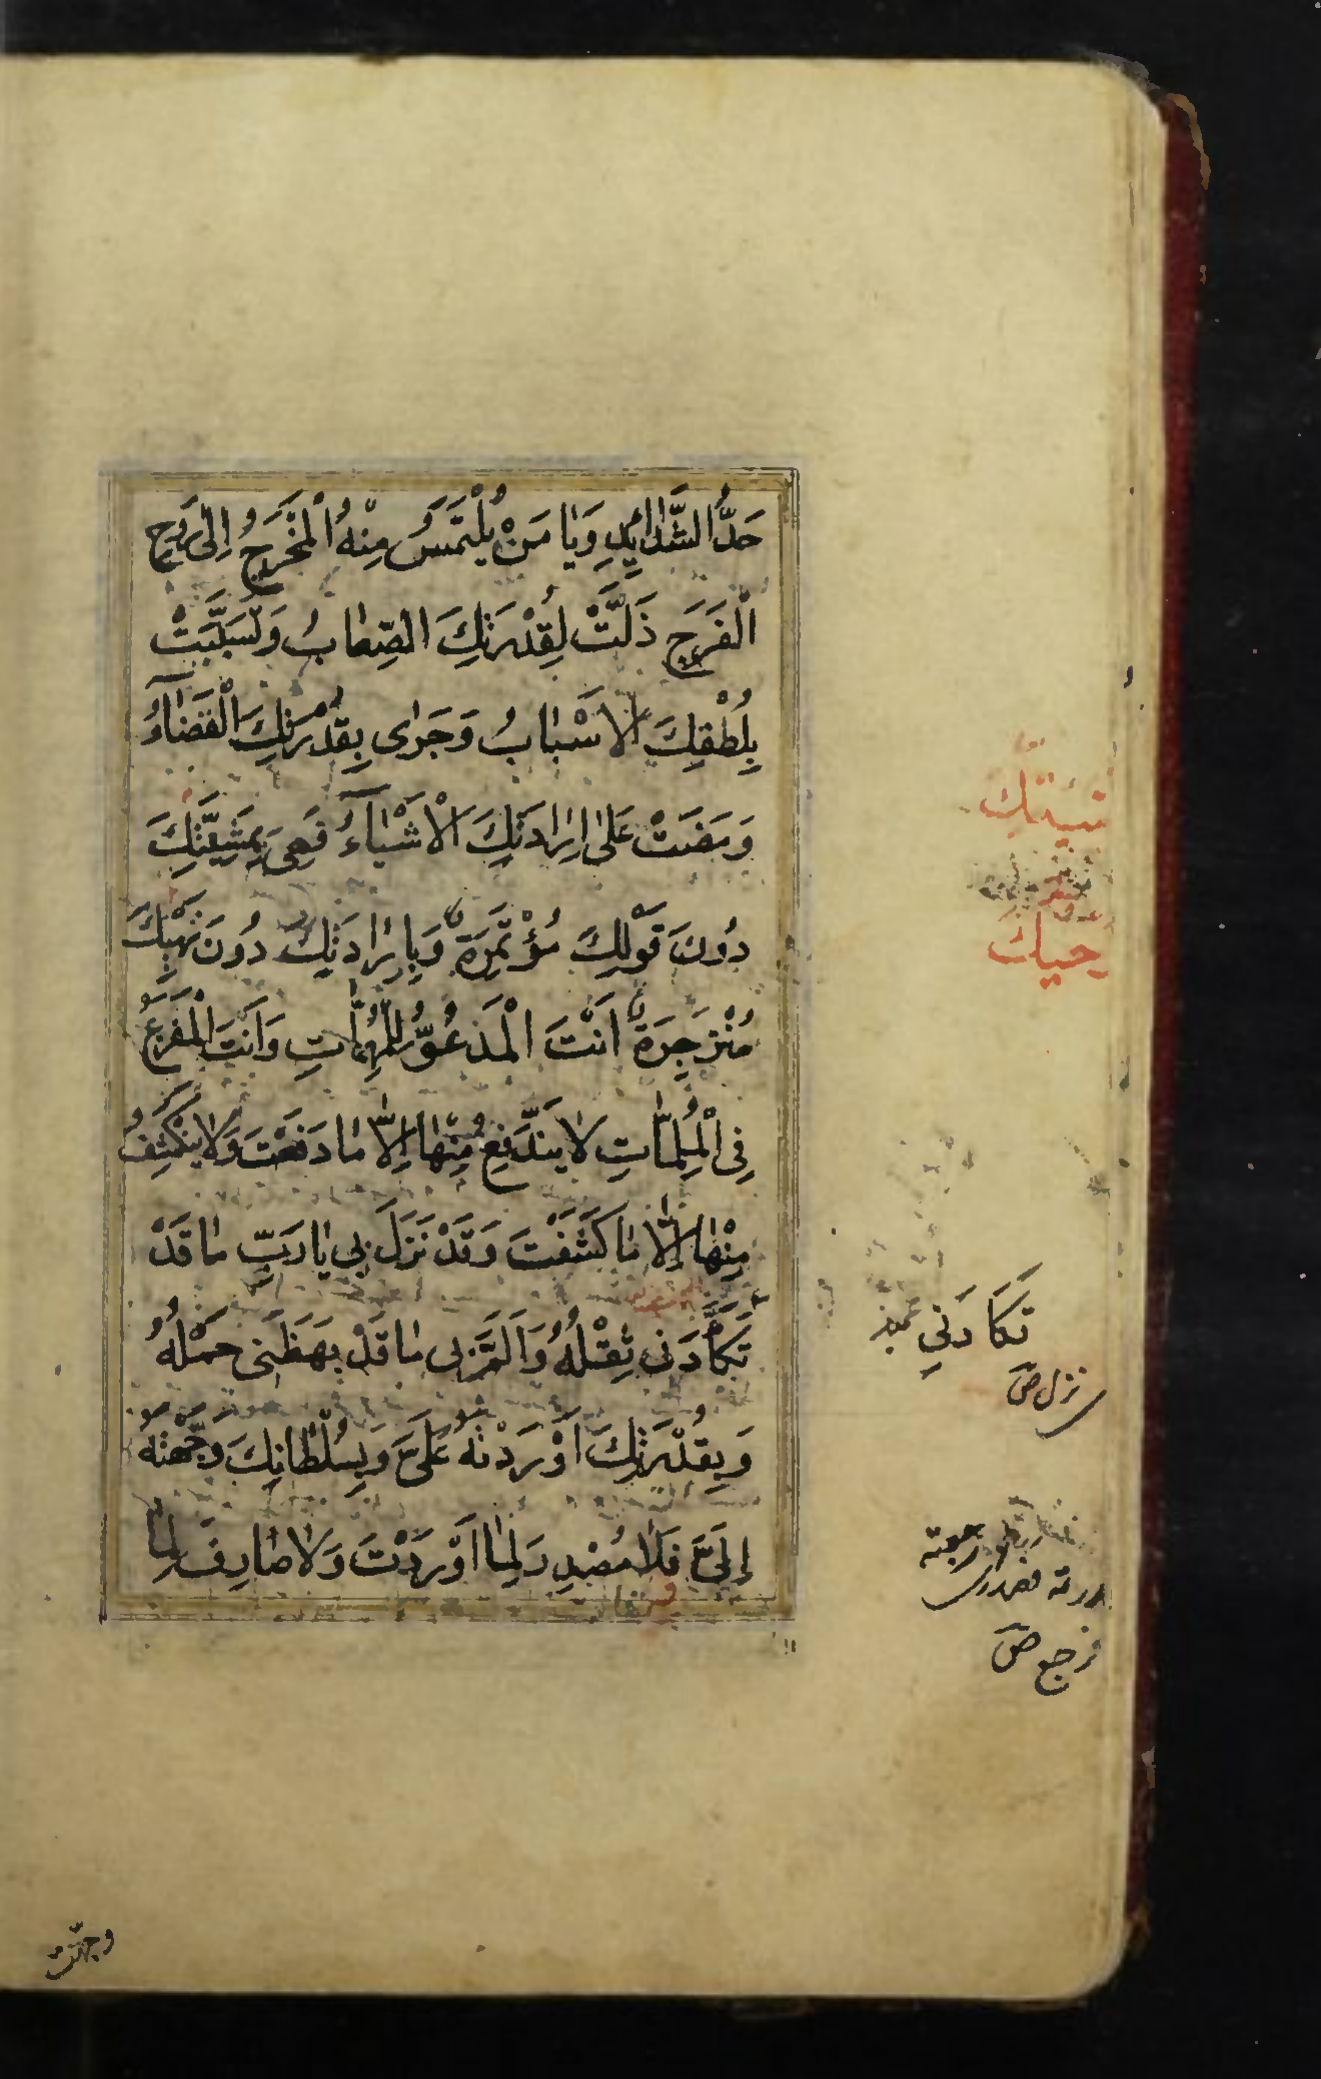 حَدُّ الشَّدَائِدِ وَيَا مَنْ يُلْتَمَسُ مِنْهُ الْمَخْرَجُ اِلٰى رَوْحِ
الْفَرَجِ ذَلَّتْ لِقُدْرَتِكَ الصِّعَابُ وَتَسَبَّبَتْ
بِلُطْفِكَ الْاَسْبَابُ وَجَرٰى بِقُدْرَتِكَ الْقَضَآءُ
وَمَضَتْ عَلٰى اِرَادَتِكَ الْاَشْيَآءُ فَهِىَ بِمَشِيَّتِكَ
دُونَ قَوْلِكَ مُؤْتَمِرَةٌ وَبِاِرَادَتِكَ دُونَ نَهْيِكَ
مُنْزَجِرَةٌ اَنْتَ الْمَدْعُوُّ لِلْمُهِمَّاتِ وَاَنْتَ الْمَفْزَعُ
فِى الْمُلِمَّاتِ لَا يَنْدَفِعُ مِنْهَا اِلَّا مَا دَفَعْتَ وَلَا يَنْكَشِفُ
مِنْهَا اِلَّا مَا كَشَفْتَ وَقَدْ نَزَلَ بِى يَا رَبِّ مَا قَدْ
تَكَأَّدَنِى ثِقْلُهُ وَاَلَمَّ بِى مَا قَدْ بَهَظَنِى حَمْلُهُ
وَبِقُدْرَتِكَ اَوْرَدْتَهُ عَلَىَّ وَبِسُلْطَانِكَ وَجَّهْتَهُ
اِلَىَّ فَلَا مُصْدِرَ لِمَا اَوْرَدْتَ وَلَا صَارِفَ لِمَا
تَكَادَنِي
نزل ص
ص
وجهت